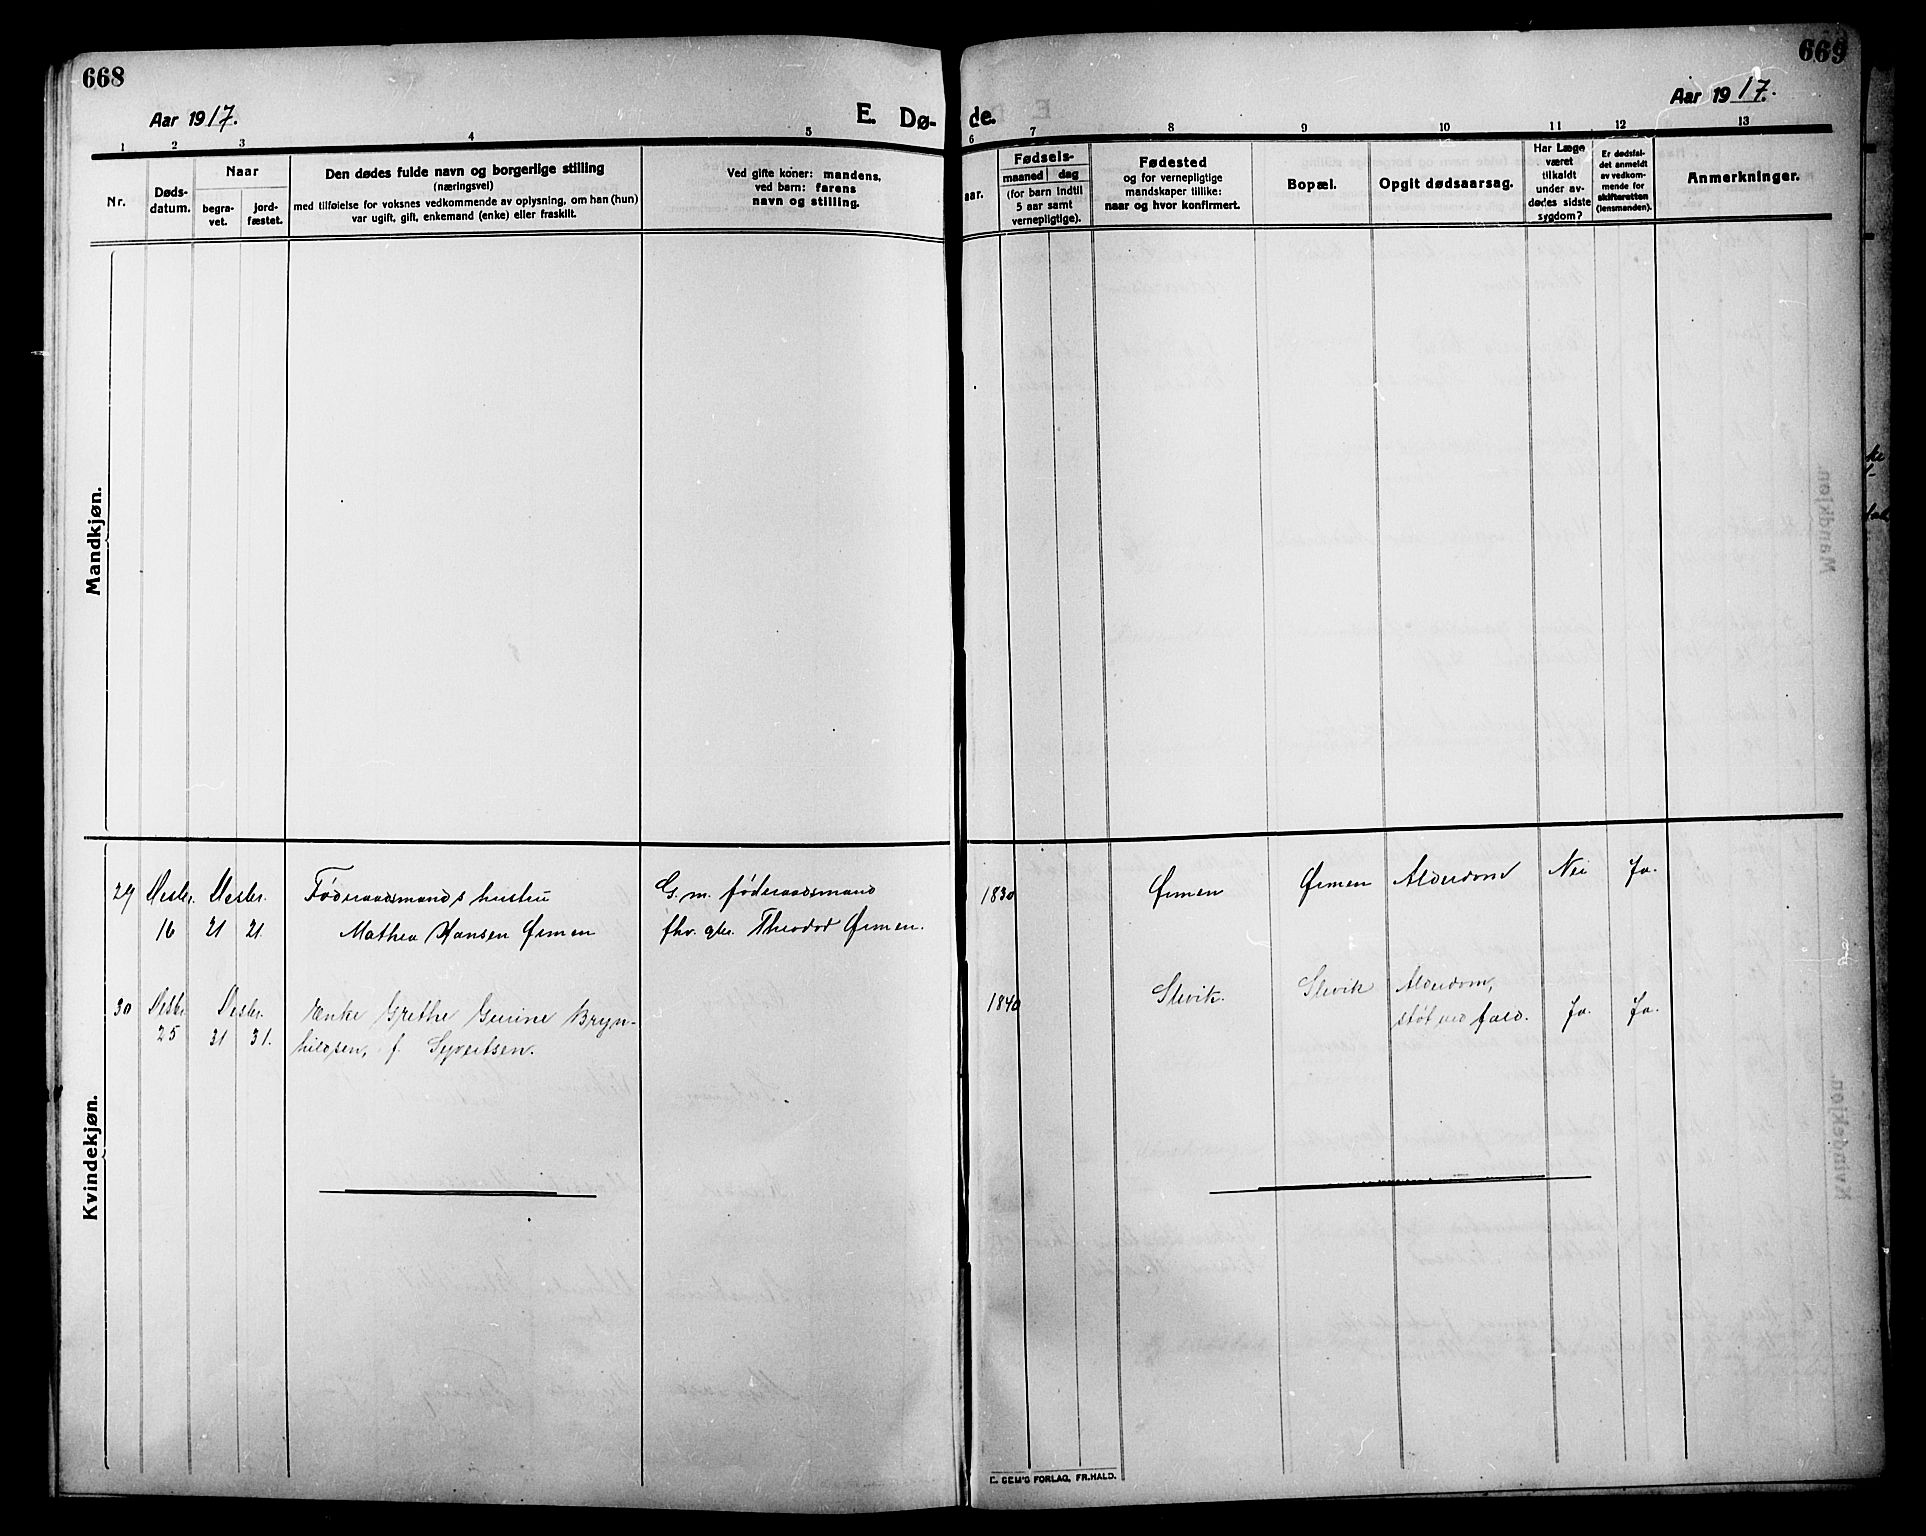 668
669
Aar 1917.
E. Dø-
de.
Aar 1917.
1 2 3 4 5 6 7 8 9 10 11 12 13
Nr.
Døds-
datum.
Naar
begra-
vet.
jord-
fæstet.
Den dødes fulde navn og borgerlige stilling
(næringsvei)
med tilføielse for voksnes vedkommende av oplysning, om han (hun)
var ugift, gift, enkemand (enke) eller fraskilt.
Ved gifte koner: mandens,
ved barn: farens
navn og stilling.
aar.
Fødsels-
maaned dag
(for barn indtil
5 aar samt
vernepligtige).
Fødested
og for vernepligtige
mandskaper tillike:
naar og hvor konfirmert.
Bopæl.
Opgit dødsaarsag.
Har Læge
været
tilkaldt
under av-
dødes sidste
sygdom?
Er dødsfal-
det anmeldt
av vedkom-
mende for
skifteretten
(lensmanden).
Anmerkninger.
Mandkjøn.
Kvindekjøn.
29 Desbr. Desbr. Føderaadsmands hustru G. m. føderaadsmand 1830 Ørmen Ørmen Alderdom Nei Ja.
16 21 21. Mathea Hansen Ørmen fhv. gbr. Theodor Ørmen.
30 Desbr. Desbr. Enke Grethe Gurine Bryn- 1840 Slevik. Slevik Alderdom, Ja. Ja.
25 31 31. hildsen, f. Syvertsen. støt ved fald.
E. SEM'S FORLAG, FR.HALD.